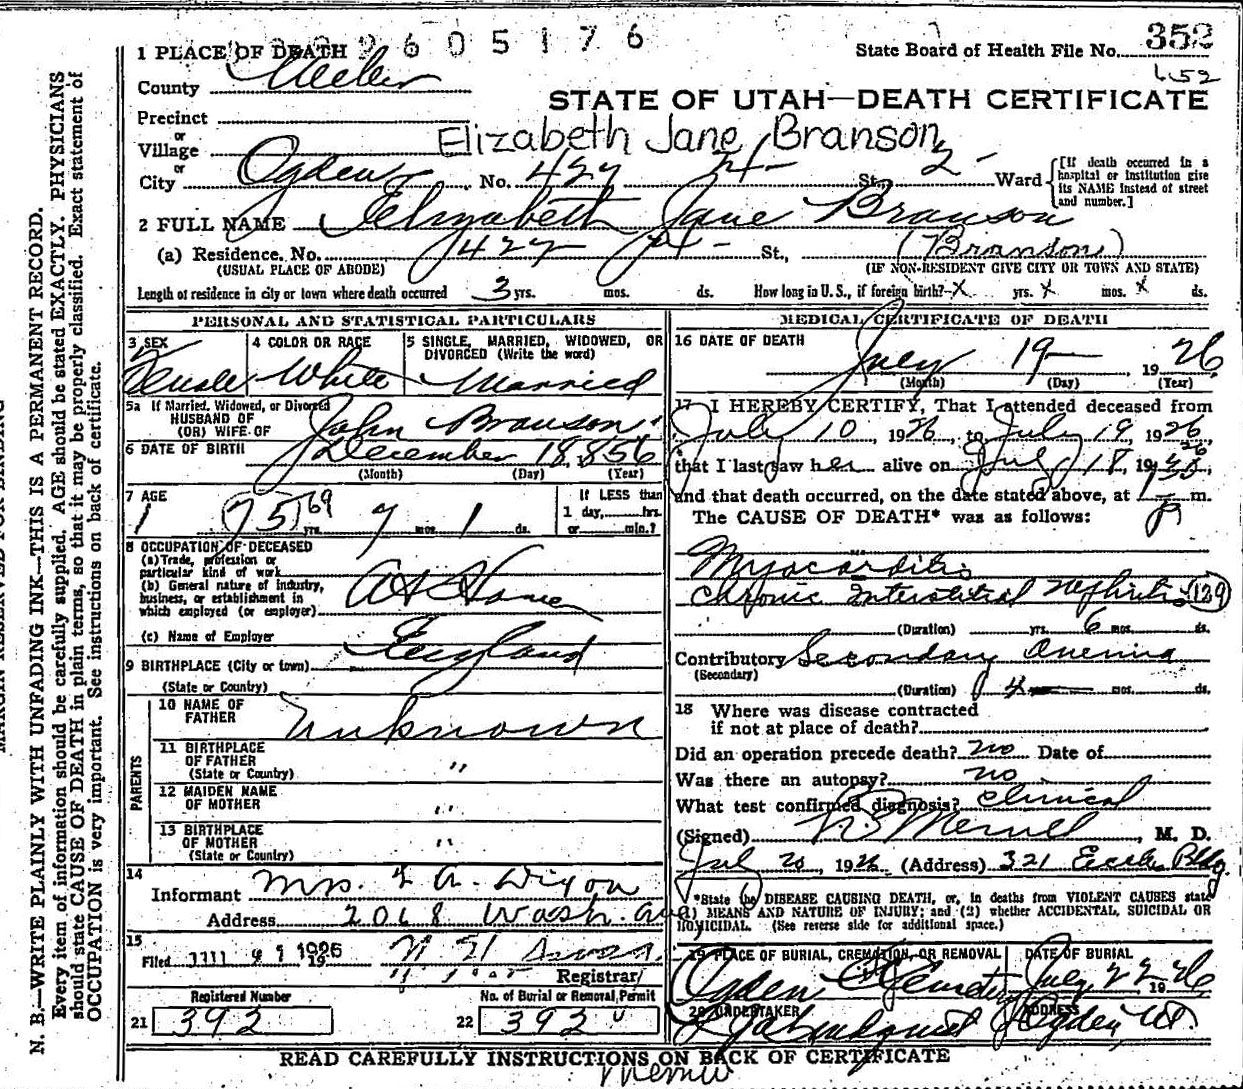 2605176
State Board of Health File No. 352
652
1 PLACE OF DEATH
County Weber
STATE OF UTAH—DEATH CERTIFICATE
Precinct
or
Village
Elizabeth Jane Branson
or
City Ogden No. 427 24 St., 2 Ward
[If death occurred in a hospital or institution give its NAME instead of street and number.]
2 FULL NAME Elizabeth Jane Branson
(a) Residence. No. 427 24 St., (Branson)
(USUAL PLACE OF ABODE) (IF NON-RESIDENT GIVE CITY OR TOWN AND STATE)
Length of residence in city or town where death occurred 3 yrs. mos. ds. How long in U.S., if foreign birth? x yrs. x mos. x ds.
PERSONAL AND STATISTICAL PARTICULARS
3 SEX Female
4 COLOR OR RACE White
5 SINGLE, MARRIED, WIDOWED, OR DIVORCED (Write the word) Married
5a If Married, Widowed, or Divorced
HUSBAND OF
(OR) WIFE OF John Branson
6 DATE OF BIRTH December 18, 1856
(Month) (Day) (Year)
7 AGE 75 69 yrs. 7 mos. 1 ds.
If LESS than
1 day, hrs.
or min.?
8 OCCUPATION OF DECEASED
(a) Trade, profession or
particular kind of work
(b) General nature of industry,
business, or establishment in
which employed (or employer)
At Home
(c) Name of Employer
9 BIRTHPLACE (City or town) England
(State or Country)
PARENTS
10 NAME OF
FATHER Unknown
11 BIRTHPLACE
OF FATHER "
(State or Country)
12 MAIDEN NAME
OF MOTHER "
13 BIRTHPLACE
OF MOTHER "
(State or Country)
14
Informant Mrs. Dixon
Address 2068 Wash. Ave
15
Filed 1926
Registrar
Registered Number
21 392
No. of Burial or Removal Permit
22 392
MEDICAL CERTIFICATE OF DEATH
16 DATE OF DEATH
July 19 1926
(Month) (Day) (Year)
17 I HEREBY CERTIFY, That I attended deceased from
July 10, 1926, to July 19, 1926,
that I last saw her alive on July 18, 1926,
and that death occurred, on the date stated above, at 1 P m.
The CAUSE OF DEATH* was as follows:
Myocarditis
Chronic Interstitial Nephritis 129
(Duration) yrs. 6 mos. ds.
Contributory Secondary Anemia
(Secondary)
(Duration) 4 mos. ds.
18 Where was disease contracted
if not at place of death?
Did an operation precede death? no Date of
Was there an autopsy? no
What test confirmed diagnosis? clinical
(Signed) Merrill, M. D.
July 20, 1926 (Address) 321 Eccles Bldg.
*State the DISEASE CAUSING DEATH, or, in deaths from VIOLENT CAUSES state
(1) MEANS AND NATURE OF INJURY; and (2) whether ACCIDENTAL, SUICIDAL OR
HOMICIDAL. (See reverse side for additional space.)
19 PLACE OF BURIAL, CREMATION, OR REMOVAL
Ogden Cemetery
DATE OF BURIAL
July 22 1926
20 UNDERTAKER
Lindquist
ADDRESS
Ogden, Ut.
READ CAREFULLY INSTRUCTIONS ON BACK OF CERTIFICATE
N. B.—WRITE PLAINLY WITH UNFADING INK—THIS IS A PERMANENT RECORD.
Every item of information should be carefully supplied. AGE should be stated EXACTLY. PHYSICIANS
should state CAUSE OF DEATH in plain terms, so that it may be properly classified. Exact statement of
OCCUPATION is very important. See instructions on back of certificate.